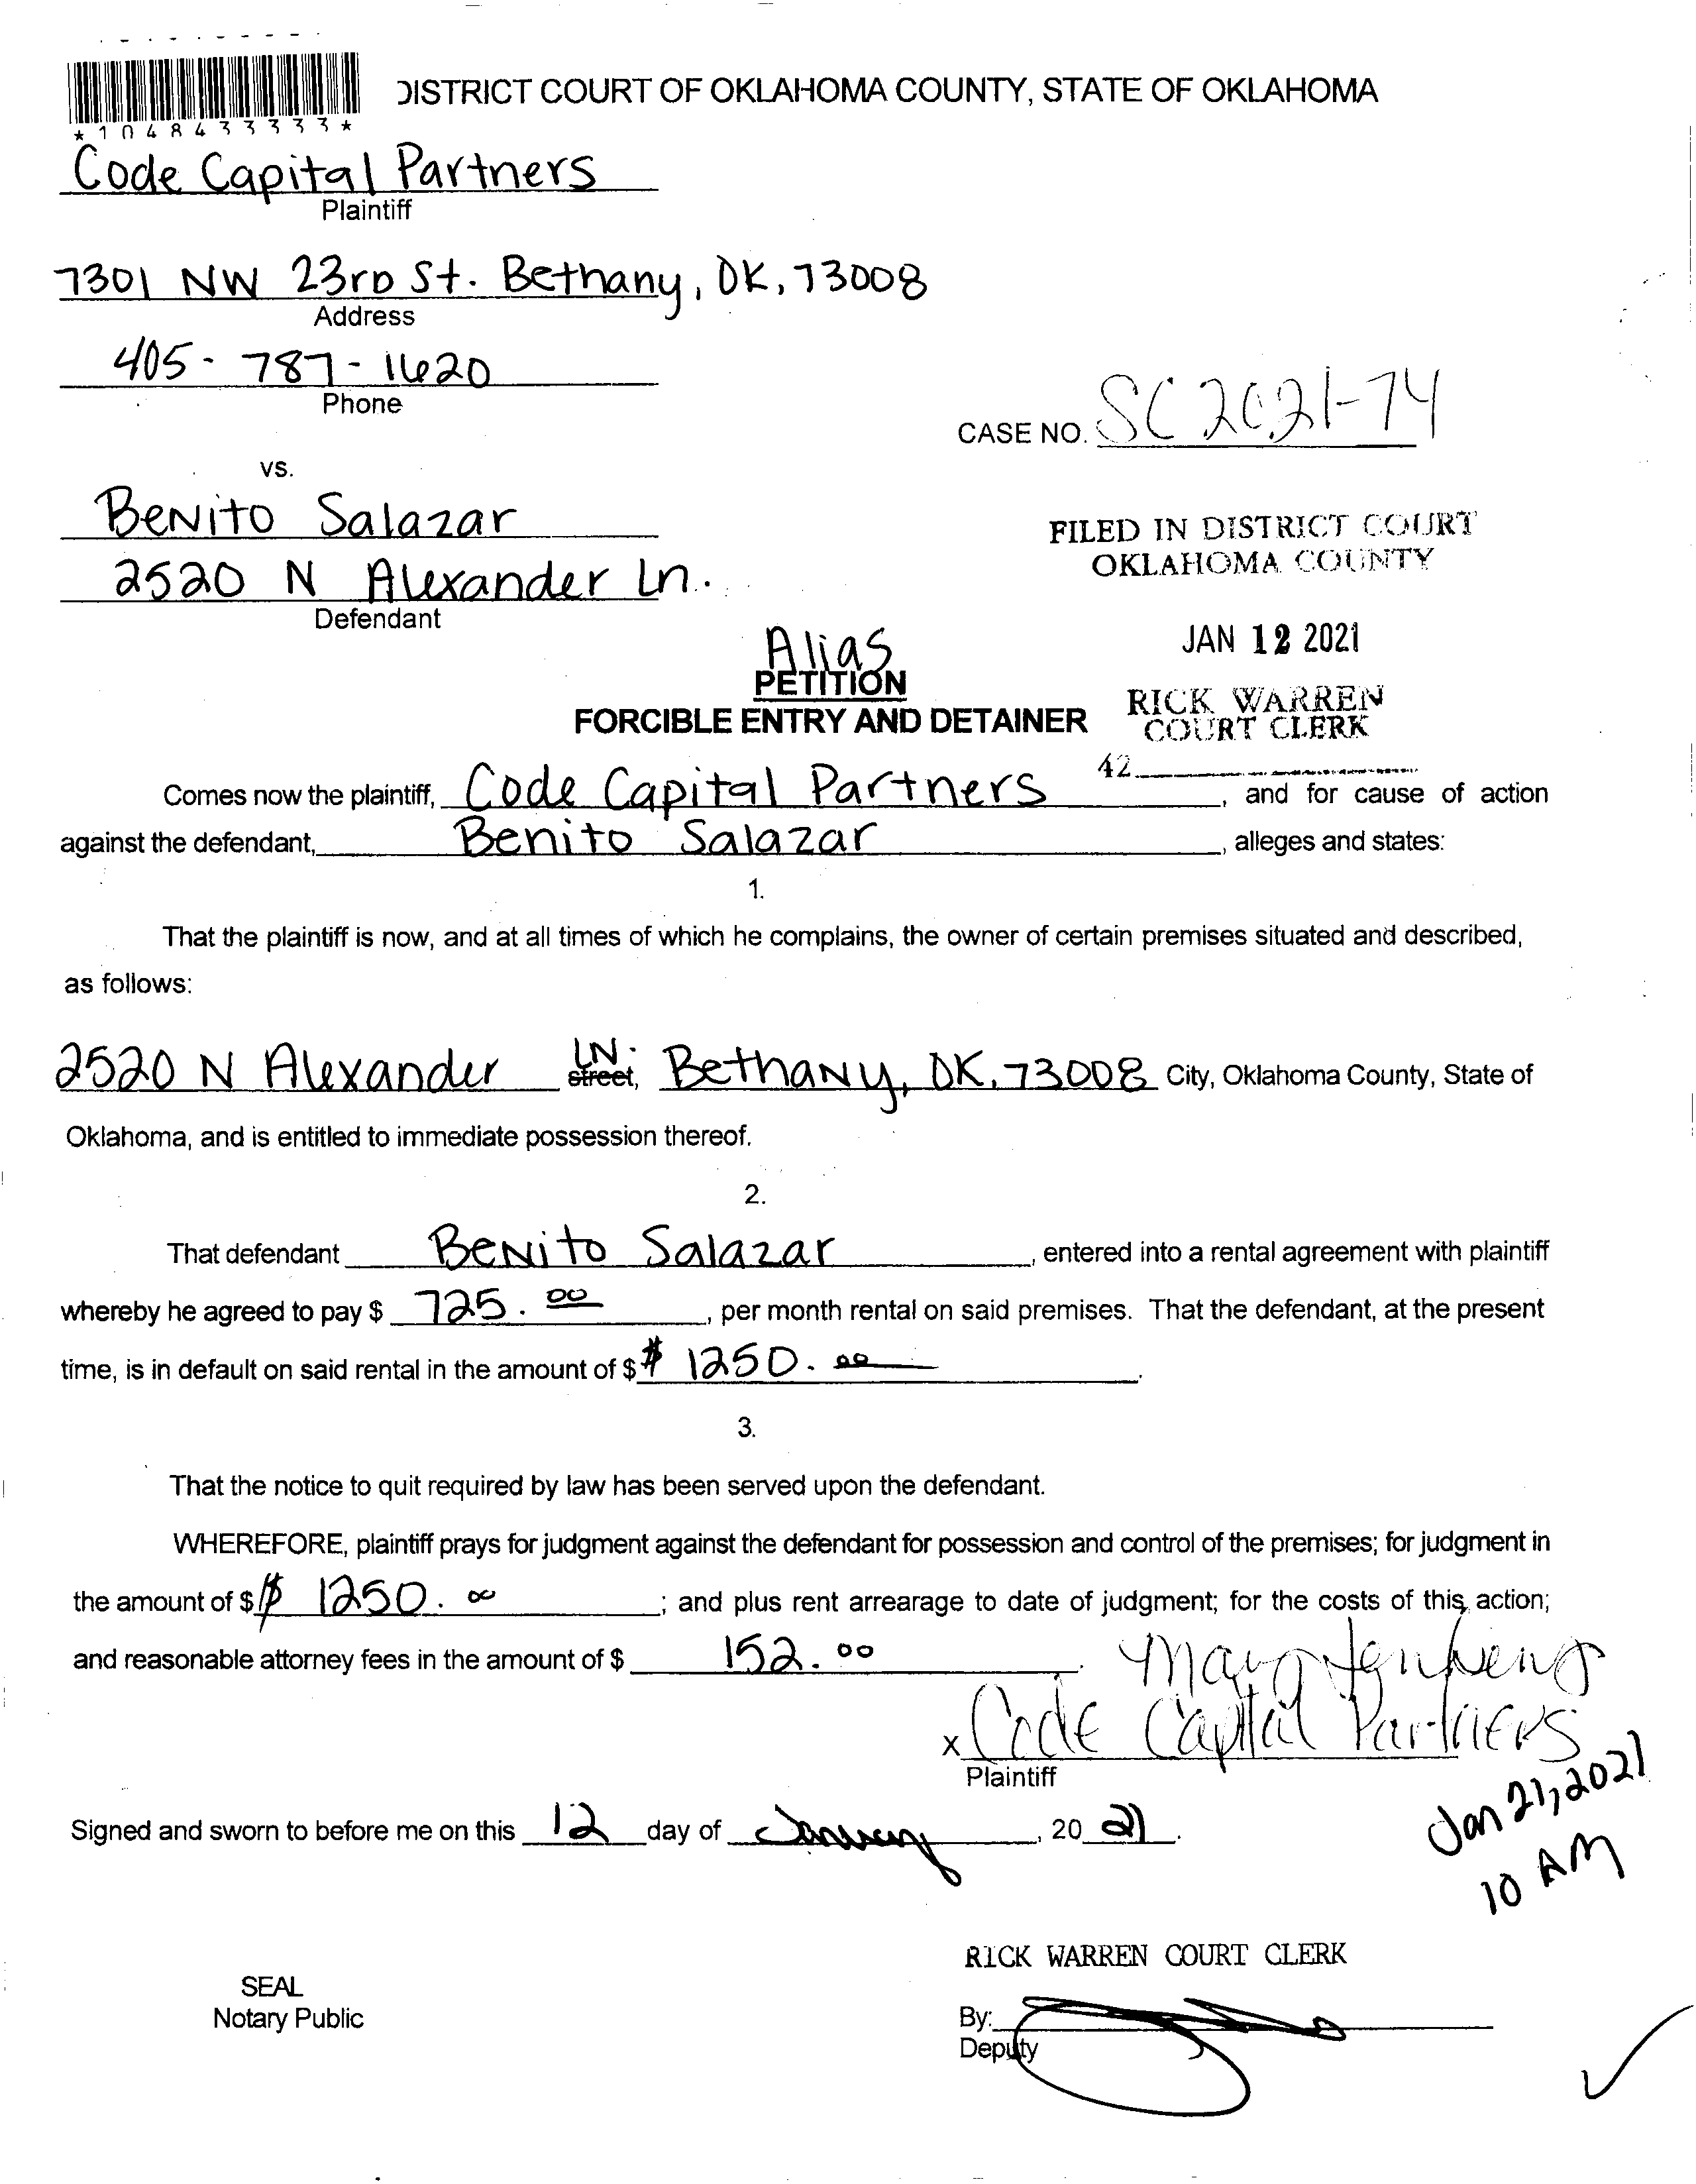 DISTRICT COURT OF OKLAHOMA COUNTY, STATE OF OKLAHOMA
*1048433333*
Code Capital Partners
Plaintiff
7301 NW 23rD St. Bethany, OK, 73008
Address
405-787-1620
Phone
CASE NO. SC2021-74
vs.
BeNito Salazar
2520 N Alexander Ln.
Defendant
FILED IN DISTRICT COURT
OKLAHOMA COUNTY
JAN 12 2021
RICK WARREN
COURT CLERK
42
Alias
PETITION
FORCIBLE ENTRY AND DETAINER
Comes now the plaintiff, Code Capital Partners, and for cause of action
against the defendant, Benito Salazar, alleges and states:
1.
That the plaintiff is now, and at all times of which he complains, the owner of certain premises situated and described,
as follows:
2520 N Alexander LN. street, BethaNy, OK, 73008 City, Oklahoma County, State of
Oklahoma, and is entitled to immediate possession thereof.
2.
That defendant BeNito Salazar, entered into a rental agreement with plaintiff
whereby he agreed to pay $ 725.00, per month rental on said premises. That the defendant, at the present
time, is in default on said rental in the amount of $ $ 1250.00.
3.
That the notice to quit required by law has been served upon the defendant.
WHEREFORE, plaintiff prays for judgment against the defendant for possession and control of the premises; for judgment in
the amount of $ $ 1250.00; and plus rent arrearage to date of judgment; for the costs of this action;
and reasonable attorney fees in the amount of $ 152.00.
X Code Capital Partners
Plaintiff
Signed and sworn to before me on this 12 day of January, 20 21.
Jan 21, 2021
10 AM
RICK WARREN COURT CLERK
SEAL
Notary Public
By:
Deputy